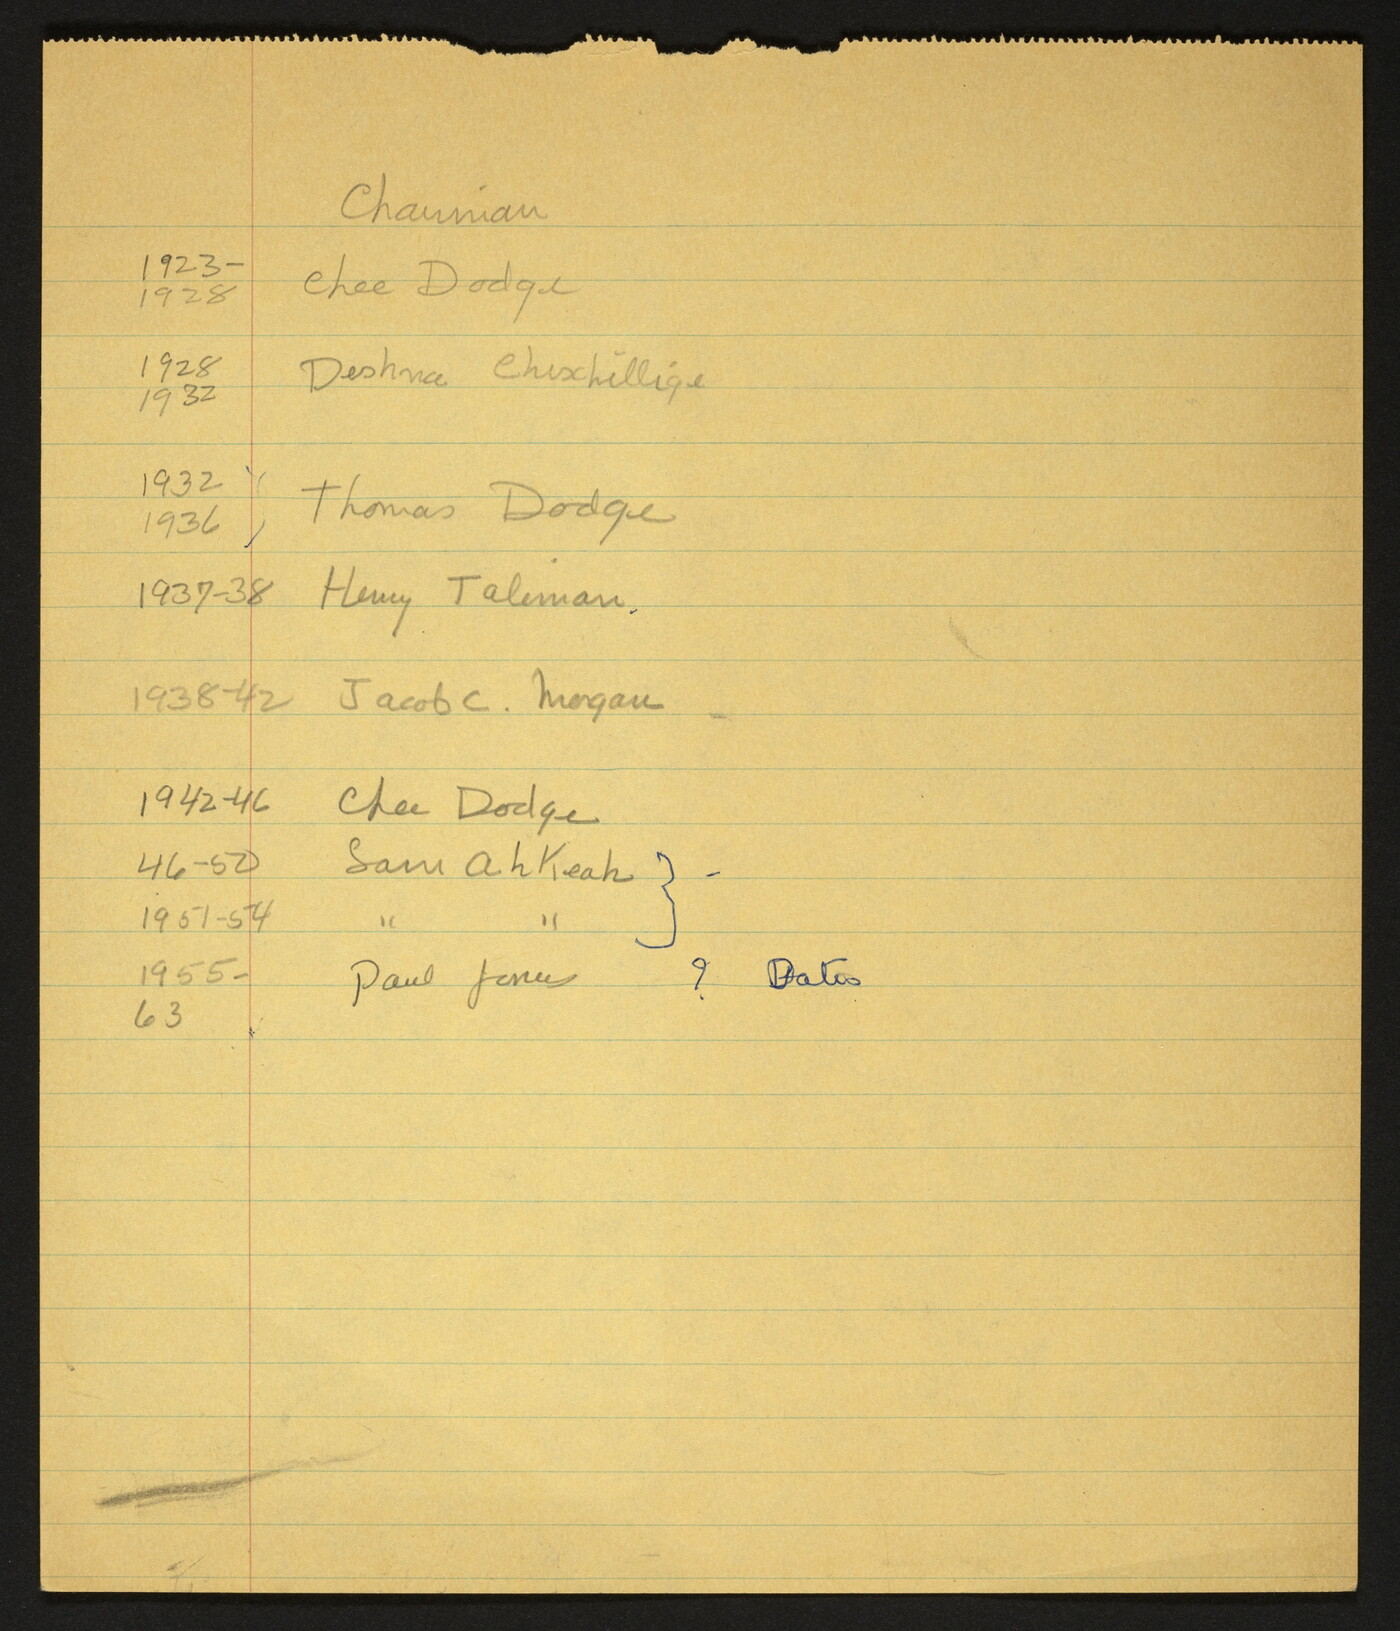 Chairman
1923-
1928 Chee Dodge
1928
1932 Deshna Chischillige
1932
1936 } Thomas Dodge
1937-38 Henry Taliman.
1938-42 Jacob C. Morgan -
1942-46 Chee Dodge
46-50 Sam AhKeah } -
1951-54 " "
1955- Paul Jones ? Dates
63